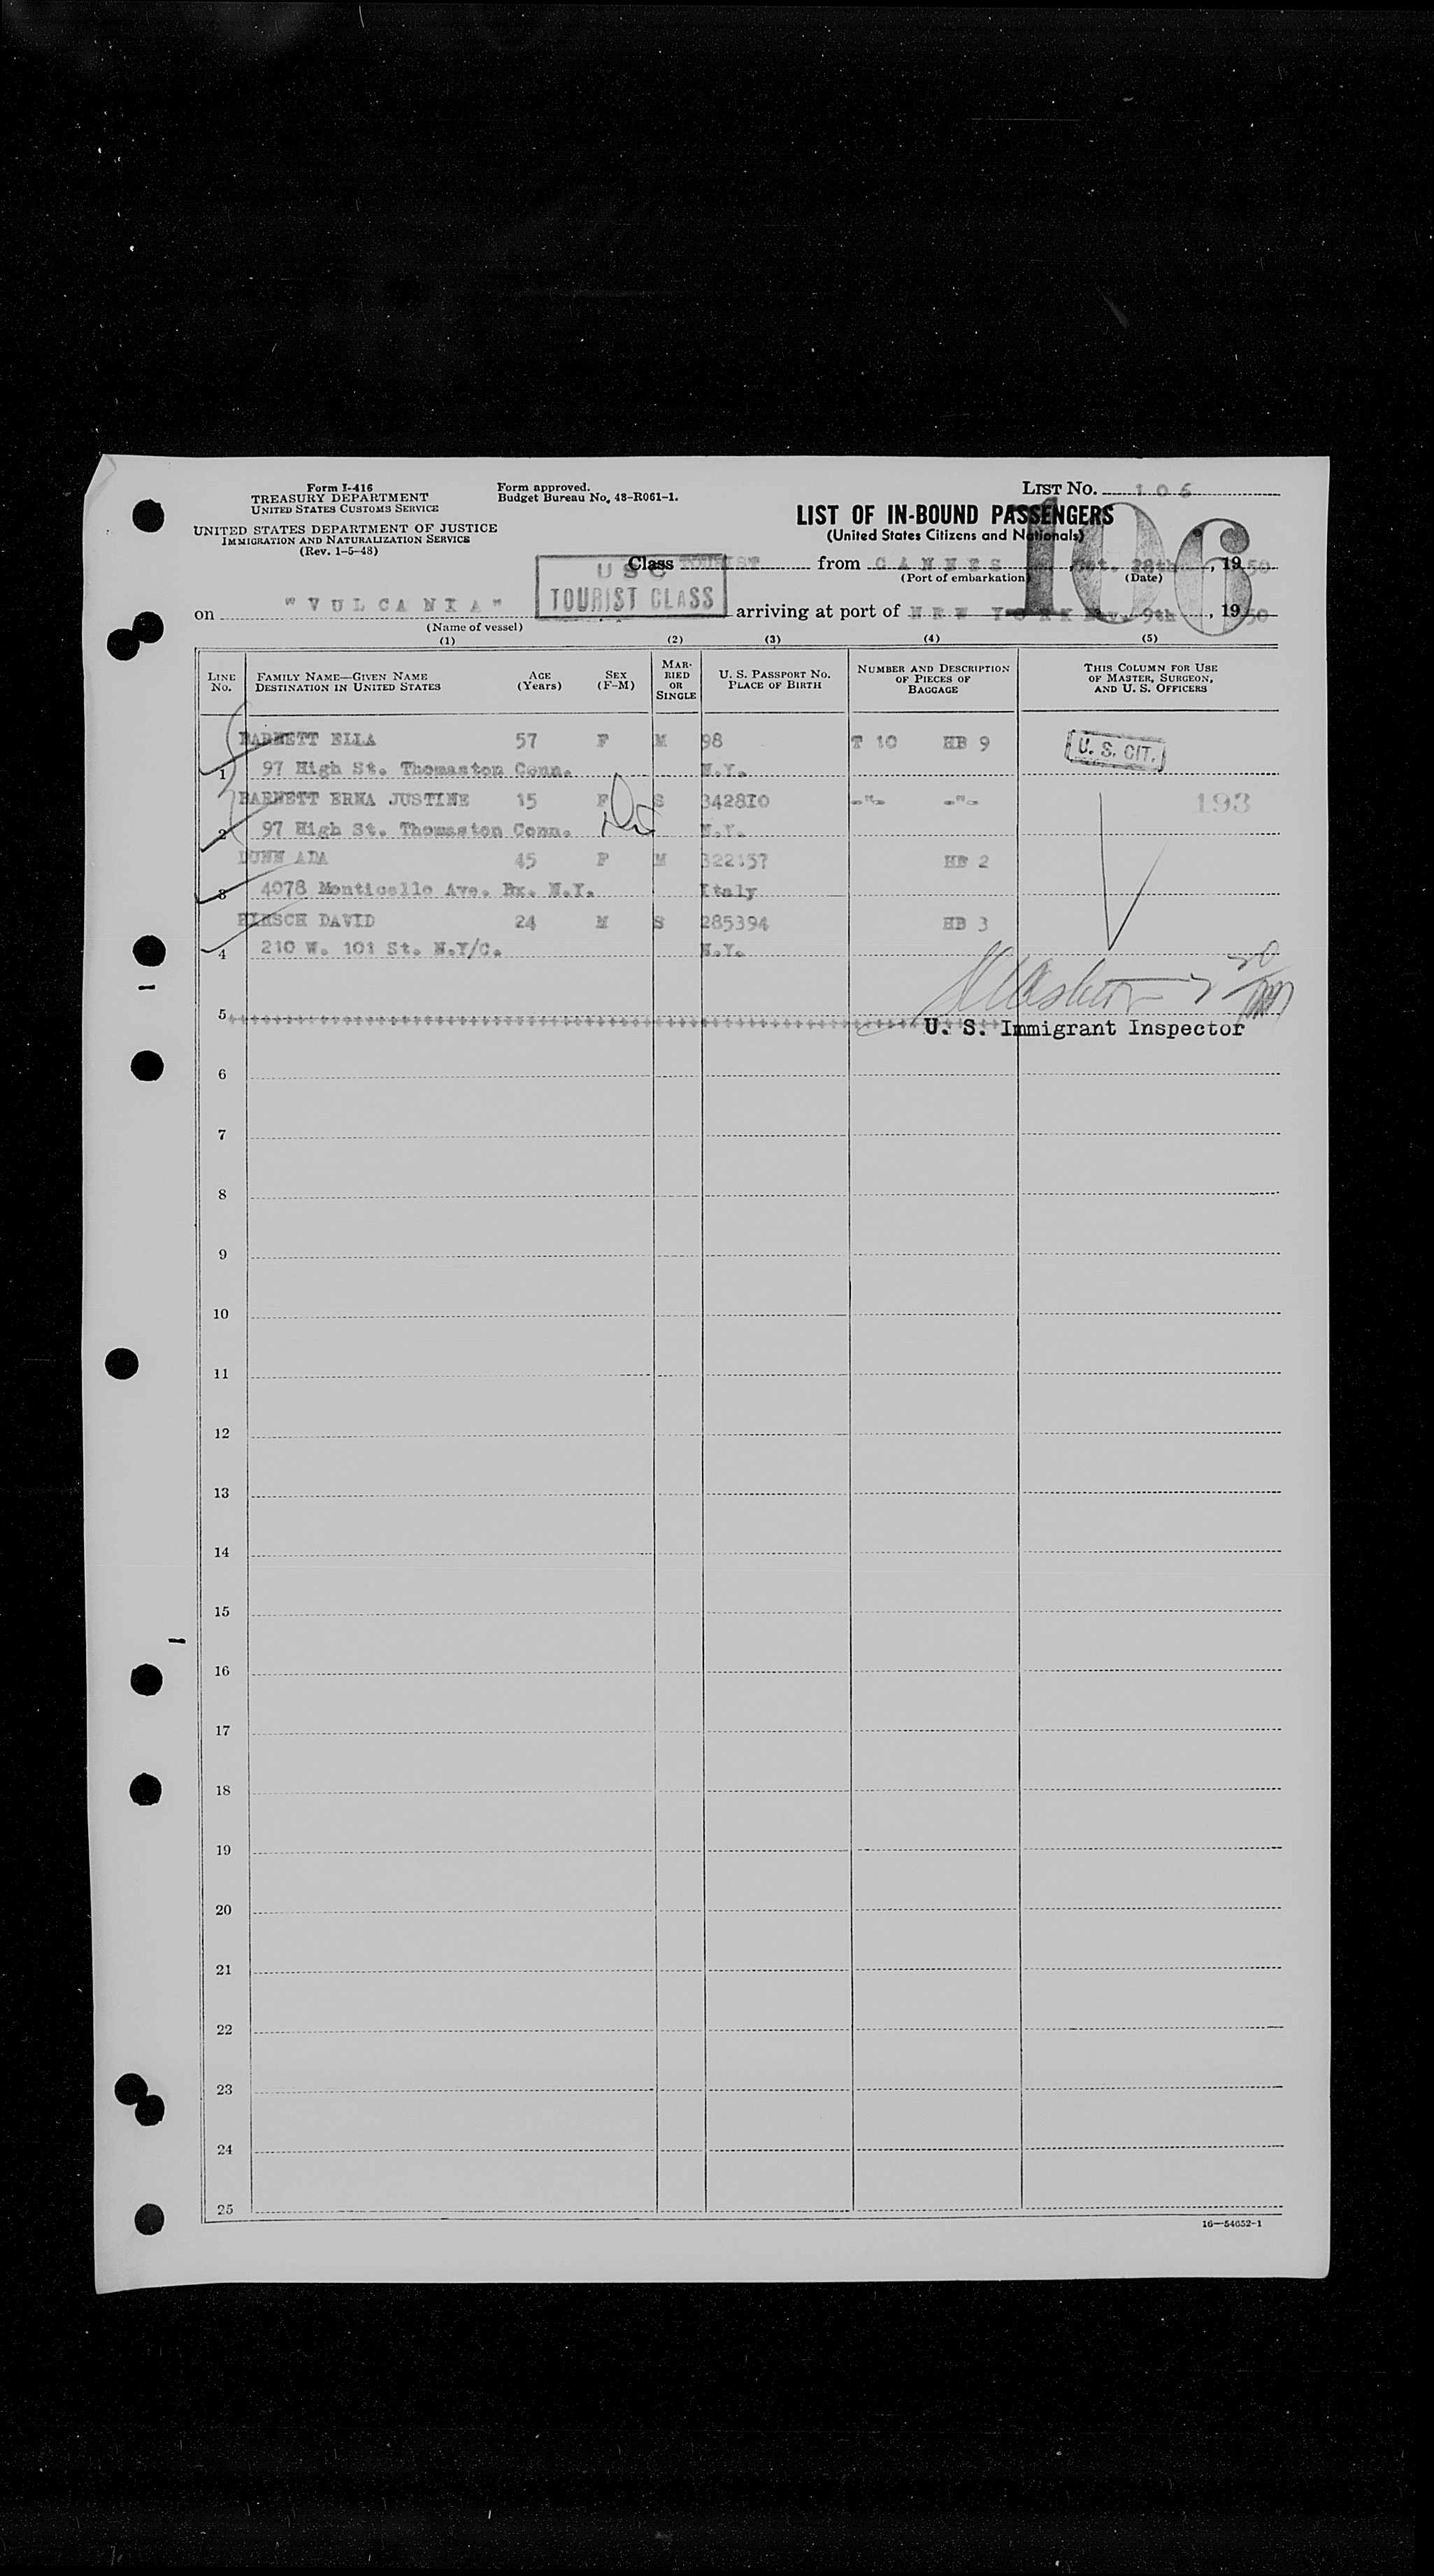 Form I-416
TREASURY DEPARTMENT
UNITED STATES CUSTOMS SERVICE
UNITED STATES DEPARTMENT OF JUSTICE
IMMIGRATION AND NATURALIZATION SERVICE
(Rev. 1-5-48)
Form approved.
Budget Bureau No. 48-R061-1.
LIST NO. 106
106
LIST OF IN-BOUND PASSENGERS
(United States Citizens and Nationals)
USC
TOURIST CLASS
Class TOURIST from CANNES Oct. 28th, 1950
(Port of embarkation) (Date)
on "VULCANIA" arriving at port of NEW YORK Nov. 9th, 1950
(Name of vessel)
(1) (2) (3) (4) (5)
LINE NO. FAMILY NAME—GIVEN NAME DESTINATION IN UNITED STATES AGE (Years) SEX (F-M) MARRIED OR SINGLE U. S. PASSPORT NO. PLACE OF BIRTH NUMBER AND DESCRIPTION OF PIECES OF BAGGAGE THIS COLUMN FOR USE OF MASTER, SURGEON, AND U. S. OFFICERS
BARNETT ELLA 57 F M 98 T 10 HB 9 U. S. CIT.
1 97 High St. Thomaston Conn. N.Y.
BARNETT ERNA JUSTINE 15 F S 342810 -"- -"- 193
2 97 High St. Thomaston Conn. N.Y.
DUNN ADA 45 F M 322157 HB 2
3 4078 Monticello Ave. Bx. N.Y. Italy
HIRSCH DAVID 24 M S 285394 HB 3
4 210 W. 101 St. N.Y/C. N.Y.
5
U. S. Immigrant Inspector
6
7
8
9
10
11
12
13
14
15
16
17
18
19
20
21
22
23
24
25
16—54652-1